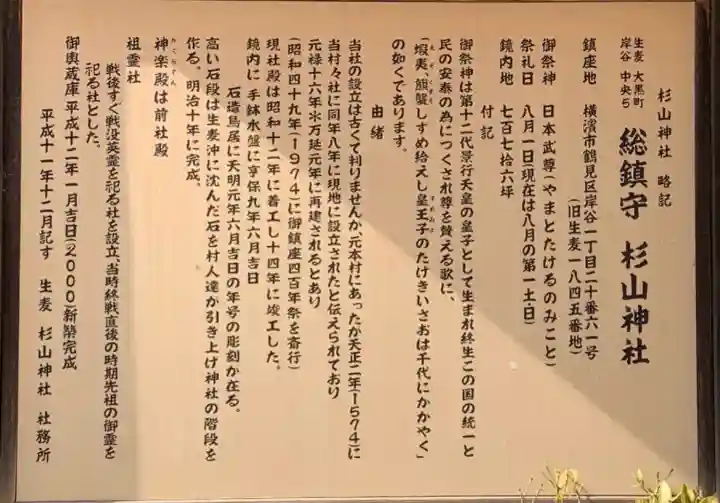 杉山神社 略記
生麦 大黒町
岸谷 中央5
総鎮守 杉山神社
鎮座地 横濱市鶴見区岸谷一丁目二十番六一号
(旧生麦一八四五番地)
御祭神 日本武尊(やまとたけるのみこと)
祭礼日 八月一日(現在は八月の第一土・日)
鏡内地 七百七十六坪
付記
御祭神は第十二代景行天皇の皇子として生まれ終生この国の統一と
民の安泰の為につくされ尊を賛える歌に、
「蝦夷、熊襲しすめ給えし皇王子のたけきいさおは千代にかかやく」
の如くであります。
由緒
当社の設立は古くて判りませんが、元本村にあったが天正二年(1574)に
当村々社に同年八年に現地に設立されたと伝えられており
元禄十六年※万延元年に再建されるとあり
(昭和四十九年(1974)に御鎮座四百年祭を斎行)
現社殿は昭和十二年に着工し十四年に竣工した。
鏡内に 手鉢水盤に享保九年六月吉日
石造鳥居に天明元年六月吉日の年号の彫刻が在る。
高い石段は生麦沖に沈んだ石を村人達が引き上げ神社の階段を
作る。明治十年に完成。
神楽殿は前社殿
祖霊社
戦後すぐ戦没英霊を祀る社を設立、当時終戦直後の時期先祖の御霊を
祀る社とした。
御輿蔵庫 平成十二年一月吉日(2000)新築完成
平成十一年十二月記す 生麦 杉山神社 社務所